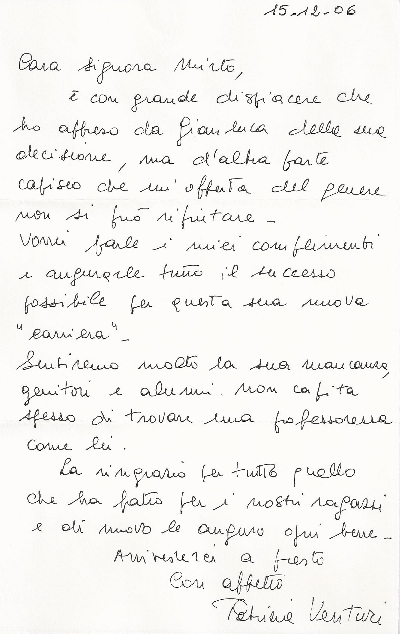 15-12-06
Cara signora Mirto,
è con grande dispiacere che
ho appreso da Gianluca della sua
decisione, ma d'altra parte
capisco che un'offerta del genere
non si può rifiutare -
Vorrei farle i miei complimenti
e augurarle tutto il successo
possibile per questa sua nuova
"carriera" -
Sentiremo molto la sua mancanza,
genitori e alunni. Non capita
spesso di trovare una professoressa
come lei.
La ringrazio per tutto quello
che ha fatto per i nostri ragazzi
e di nuovo le auguro ogni bene -
Arrivederci a presto
Con affetto
Patrizia Venturi